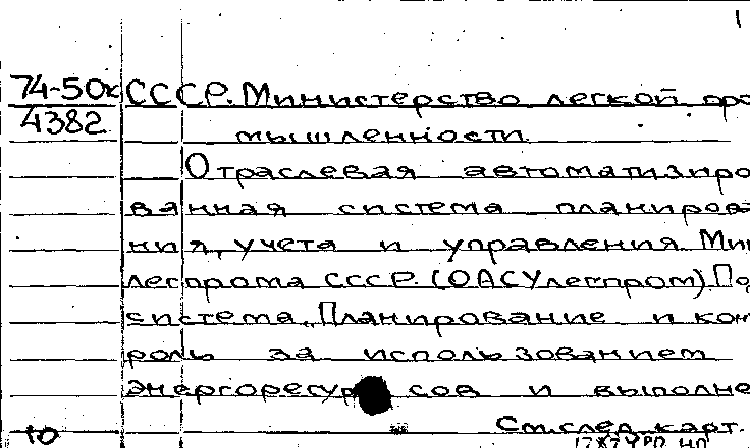 1
74-50к СССР. Министерство легкой про
4382 мышленности
Отраслевая автоматизиро
ванная система планирова
ния, учета и управления Мин
легпрома СССР. (ОАСУлегпром). По
система „Планирование и конт
роль за использованием
энергоресурсов и выполне
10 См. след. карт.